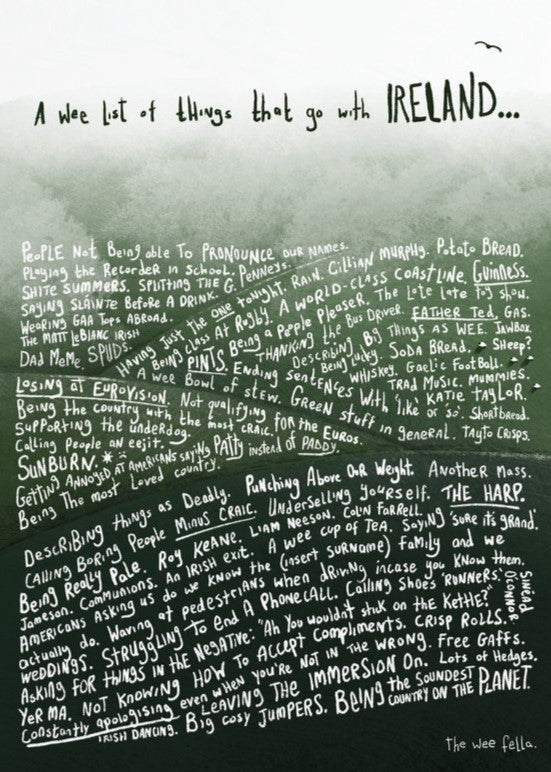 A wee list of things that go with IRELAND...
PEOPLE Not Being able To PRONOUNCE our NAMES.
Playing the Recorder in School. PENNEYS.
SHITE SUMMERS. SPLITTING THE G.
SAYING SLAINTE BEFORE A DRINK.
WEARING GAA Tops ABROAD.
THE MATT LeBLANC IRISH
DAD MeMe. SPUDS.
HAVING JUST THE ONE tonight. RAIN. CILLIAN MURPHY. Potato BREAD.
Being CLASS AT RUGBY. A WORLD-CLASS COASTLINE. GUINNESS.
PINTS. Being a People PLEASER. THE Late Late Toy show.
THANKING the Bus DRIVER. FATHER Ted. GAS.
A wee Bowl of stew. Ending sentences with 'like or 'so'.
DESCRIBING BIG THINGS AS WEE. JAWBOX.
Being lucky. SODA BREAD. SHEEP?
WHISKEY. GAELIC FOOTBALL.
TRAD MUSIC. MUMMIES.
KATIE TAYLOR.
GREEN stuff in general. Shortbread.
TAYTO CRISPS.
LOSING at EUROVISION. Not qualifying for the EUROS.
Being the country with the most CRAIC.
Supporting the underdog.
Calling People AN eejit.
SUNBURN.
GETTING ANNOYED AT AMERICANS saying PATTY instead of PADDY.
Being The most Loved country.
DESCRIBING things as Deadly. PUNCHING ABOVE OUR Weight. ANOTHER MASS.
CALLING BORING People MINUS CRAIC. Underselling yourself. THE HARP.
Being Really Pale. ROY KEANE. LIAM NEESON. COLIN FARRELL. SAYING 'SURE its GRAND'.
Jameson. Communions. AN IRISH exit. A wee cup of TEA.
AMERICANS ASKING us do we KNOW the (insert SURNAME) family and we
actually do. Waving at pedestrians when driving incase you KNOW them.
WEDDINGS. STRUGGLING to END A PHONECALL. CALLING SHOES 'RUNNERS'.
SINEAD O'CONNOR
ASKING FOR THINGS IN THE NEGATIVE: "Ah You wouldn't stick on the KETTLE?"
YER MA. NOT KNOWING HOW TO Accept Compliments. CRISP ROLLS.
Constantly apologising even when you're NOT IN THE WRONG. FREE GAFFS.
LEAVING THE IMMERSION ON. Lots of Hedges.
IRISH DANCING. Big cosy JUMPERS. BEING the SOUNDEST COUNTRY ON THE PLANET.
The wee fella.